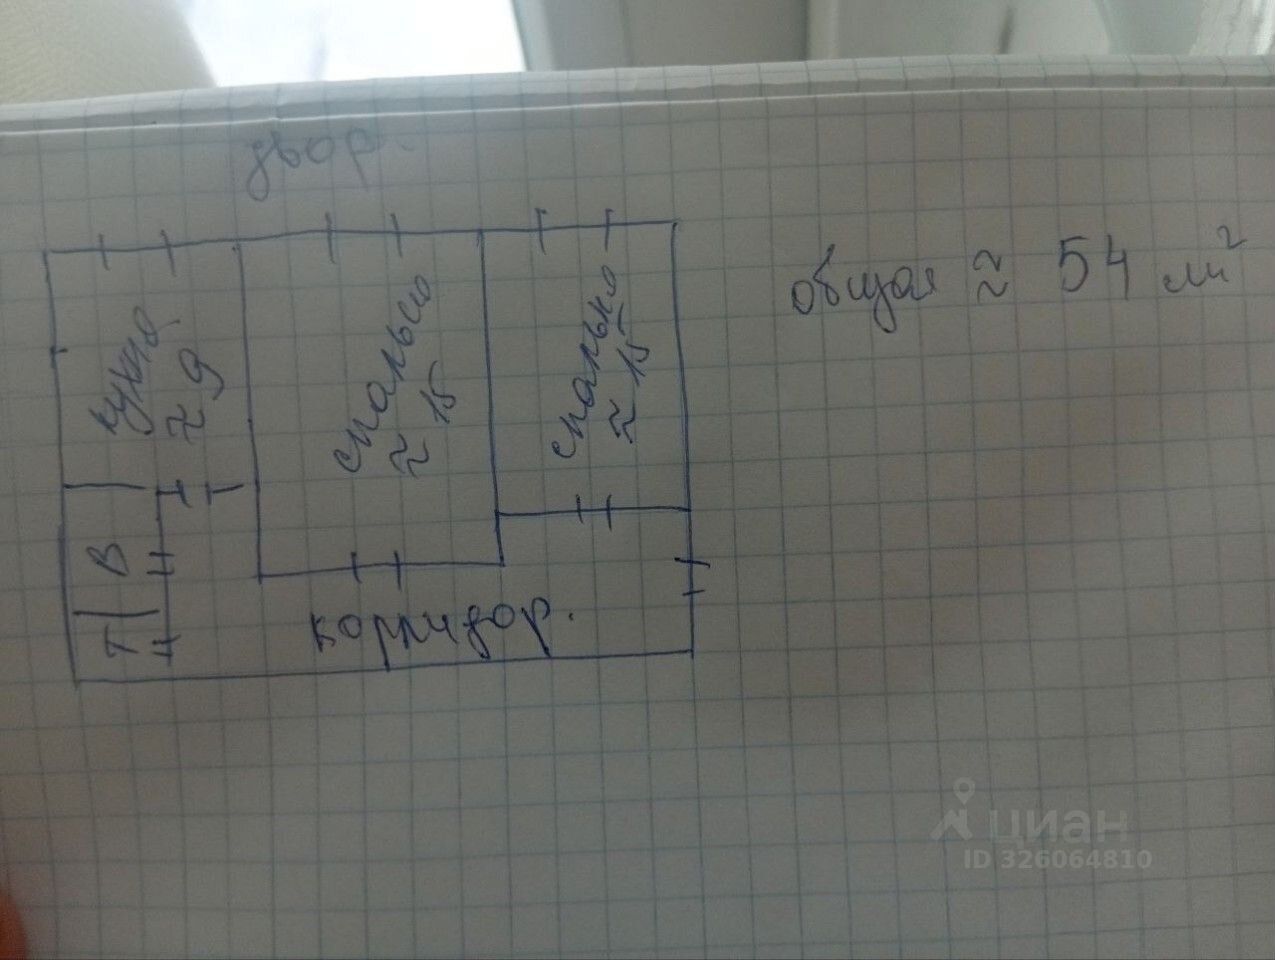 двор.
общая ≈ 54 м²
кухня
≈ 9
спальня
≈ 15
спальня
≈ 15
В
Т
корридор.
циан
ID 326064810